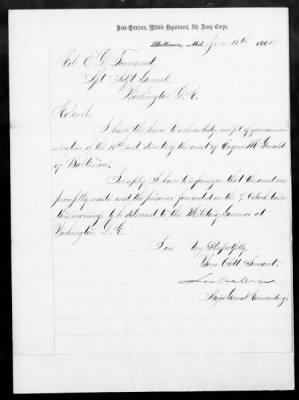 Head-Quarters, Middle Department, 8th Army Corps,
Baltimore, Md. June 18th 1864
Col. E. G. Townsend
Asst Adjt General
Washington D.C.
Colonel,
I have the honor to acknowledge receipt of your commu-
nication of the 16th inst. directing the arrest of Eugene McDonald
of Baltimore.
In reply I have to inform you that the arrest was
promptly made and the prisoner forwarded on the 7 O'clock train
this morning, to be delivered to the Military Governor at
Washington D.C.
I am Very Respectfully
Your Obtt Servant,
Major General Commanding